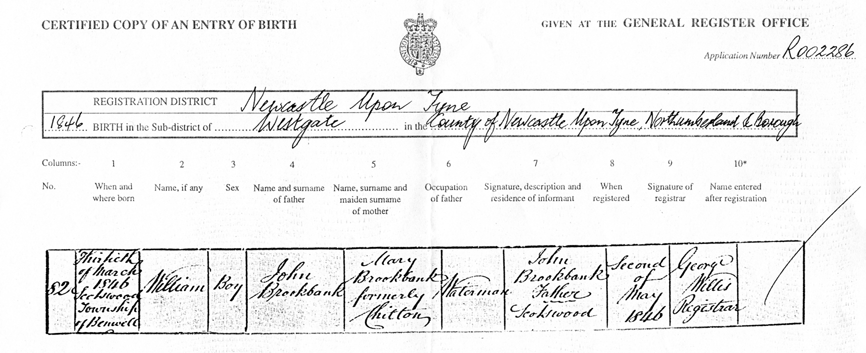 CERTIFIED COPY OF AN ENTRY OF BIRTH
GIVEN AT THE GENERAL REGISTER OFFICE
Application Number R002286
REGISTRATION DISTRICT Newcastle Upon Tyne
1846 BIRTH in the Sub-district of Westgate in the County of Newcastle Upon Tyne, Northumberland & Borough
Columns:- 1 2 3 4 5 6 7 8 9 10*
No. When and where born Name, if any Sex Name and surname of father Name, surname and maiden surname of mother Occupation of father Signature, description and residence of informant When registered Signature of registrar Name entered after registration
52
Thirtieth
of March
1846
Scotswood
Township
of Benwell
William
Boy
John
Brookbank
Mary
Brookbank
formerly
Chilton
Waterman
John
Brookbank
Father
Scotswood
Second
of
May
1846
George
Willis
Registrar